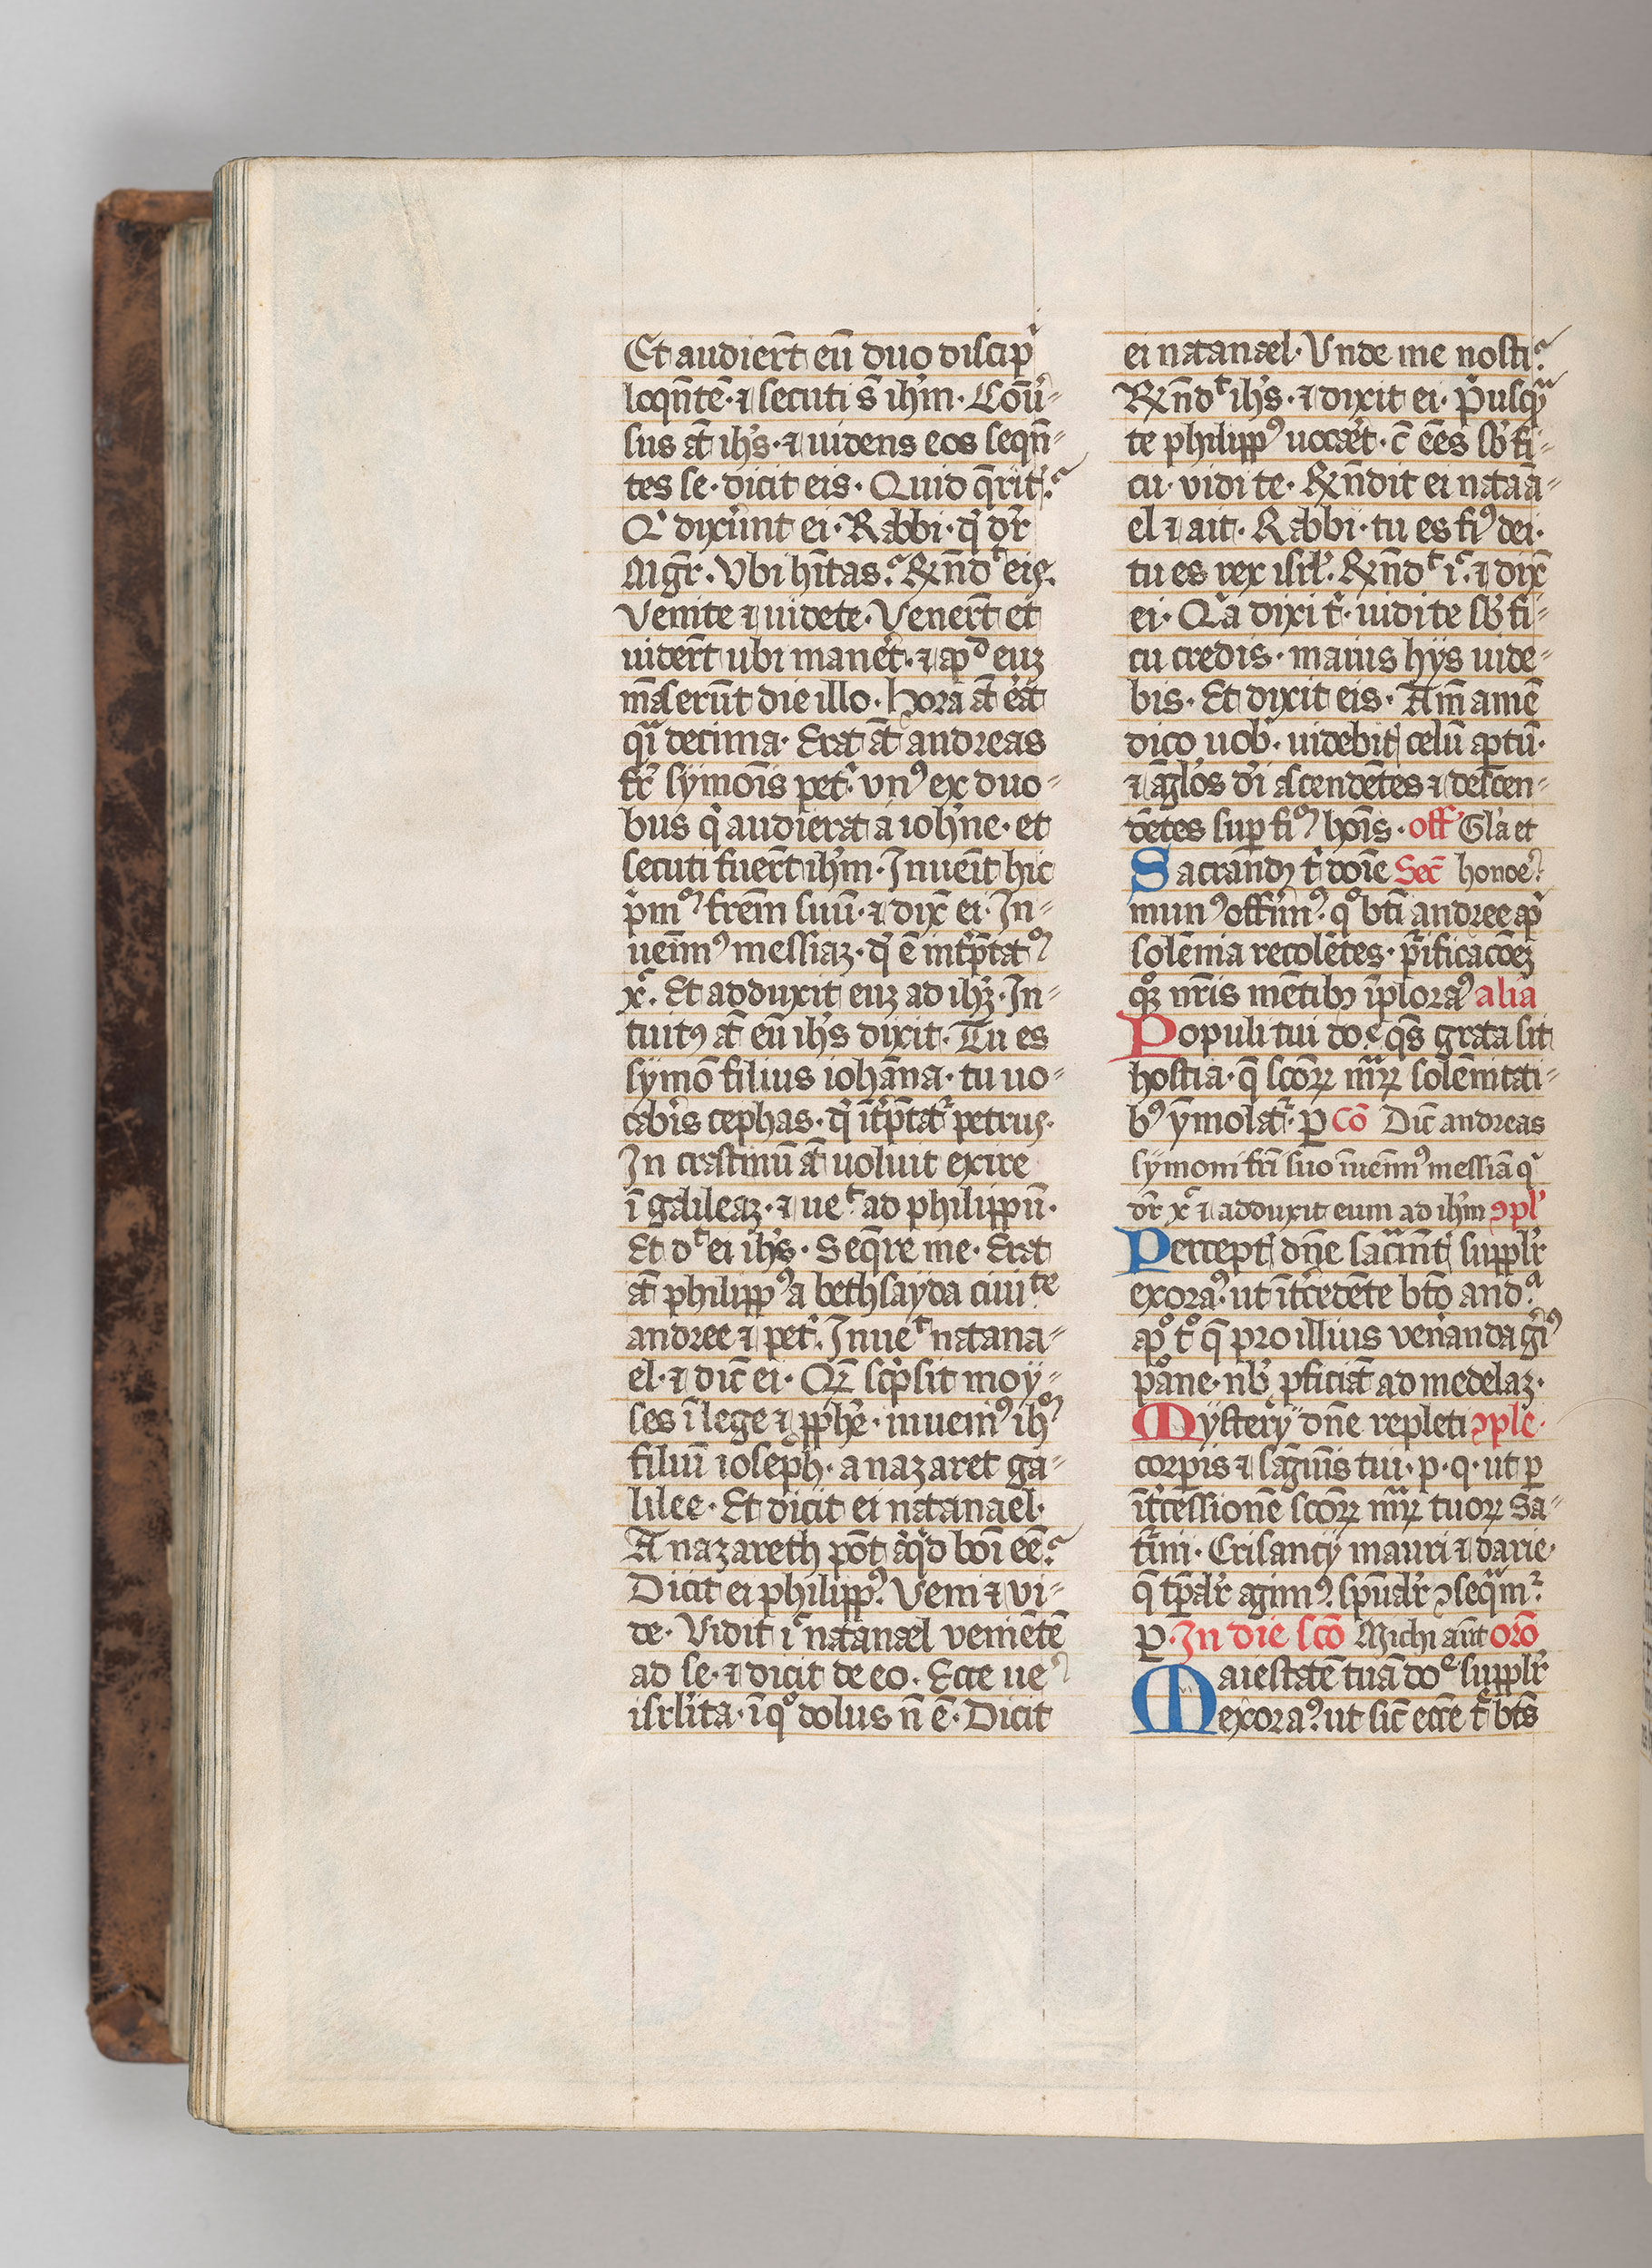 Et audiert̄ eū duo discip̍
loqn̄tē · ⁊ secuti s̄ ih̄m · Cōu̍-
sus āt ih̄s · ⁊ uidens eos seqn̄-
tes se · dicit eis · Quid q̄ritꝭ ?
Qͥ dixūnt ei · Rabbi · qͩ dr̄
Mgr̄ · Vbi hītas ? Rn̄dᵗ eis ·
Venite ⁊ uidete · Venert̄ et
uidert̄ ubi maneret · ⁊ apᵈ euꝫ
māserūt die illo · Hora āt erat
qͣi decima · Erat āt andreas
fr̄ symoīs petͥ · vnꝰ ex duo-
bus qͥ audierat a ioh̄ne · et
secuti fuert̄ ih̄m · Inueīt hic
pͥmꝰ frēm suū · ⁊ dix̄ ei · In-
uenimꝰ messiaꝫ · qͩ ē int̄p̄tatᵒ
xᶜ · Et adduxit euꝫ ad ih̄ꝫ · In-
tuitꝰ āt eū ih̄s dixit · Tu es
symō filius iohāna · tu uo-
cab̄is cephas · qͩ īt̄p̄tat̄ petrus ·
In crastinū āt uoluit exire
ī galileaꝫ · ⁊ ueᵗ ad philippū ·
Et dᵗ ei ih̄s · Seqͤre me · Erat
āt philippꝰ a bethsayda ciuiᵗᵉ
andree ⁊ petͥ · Inueᵗ natana-
el · ⁊ dic̄ ei · Qꝫ scͥpsit moy-
ses ī lege ⁊ ꝓph̄e · inuenimꝰ ih̄
filiū ioseph · a nazaret ga-
lilee · Et dicit ei natanael ·
A nazareth pōt aͥqͥd boī eē ?
Dicit ei philippꝰ · Veni ⁊ vi-
de · Vidit iᶜ natanael venīetē
ad se · ⁊ dicit de eo · Ecce ue
isrl̄ita · ī qͦ dolus n̄ ē · Dicit
ei natanael · Vnde me nosti ?
Rn̄dᵗ ih̄s · ⁊ dixit ei · Pͥusqͣ
te philippꝰ uocaret · c̄ eēs sb̄ fi-
cu · vidi te · Rn̄dit ei nataā-
el ⁊ ait · Rabbi · tu es fiꝰ dei ·
tu es rex isrl̄ · Rn̄dᵗ iᶜ · ⁊ dix̄
ei · Qͥa dixi tͥ · uidi te sb̄ fi-
cu credis · maius hys uide-
bis · Et dixit eis · Am̄ amē
dico uob̄ · uidebitꝭ celū aptū ·
⁊ āglos d̄i ascendētes ⁊ descen-
dētes suꝑ fiᵐ hoīs · off̄ Gl̄a et
Sacrandꝫ tͥ dōie Sec̄ honoe ·
munꝰ offerimꝰ · qͦ bt̄i andree ap̄
solēnia recolētes · pͥificacōeꝫ
qͦꝫ nr̄is mētibꝫ īploraꝰ alia
Populi tui doᵉ qs̄ grata sit
hostia · q̄ scōꝝ mͬꝝ solēnitati-
bꝰ ymolat̄ · ꝑ Cō Dic̄ andreas
symoni frī suo īuenīmꝰ messiā qͥ
dr̄ xᶜ ⁊ adduxit eum ad ih̄m ꝯpl̄
Perceptꝭ dn̄e sacͣmntꝭ suppl̄r
exoraꝰ · ut īt̄cedēte bt̄o andᵃ
apᵒ tᵒ q̄ pro illius veneranda gͥꝰ
passione · nb̄ ꝓficiāt ad medelaꝫ ·
Mystery dn̄e repleti ꝯple ·
corpis ⁊ sāguīs tui · p · q · ut ꝑ
īt̄cessionē scōꝝ mͬꝝ tuoꝝ Sa-
tͥini · Crisanty mauri ⁊ darie ·
q̄ tp̄alr̄ agimꝰ · spūalr̄ ꝯseqͣm ·
ꝑ · In die scō Michi aūt Oro
Maiestatē tuā doᵉ suppl̄r
exoraꝰ · ut sic̄ ecc̄e tͤ bt̄s